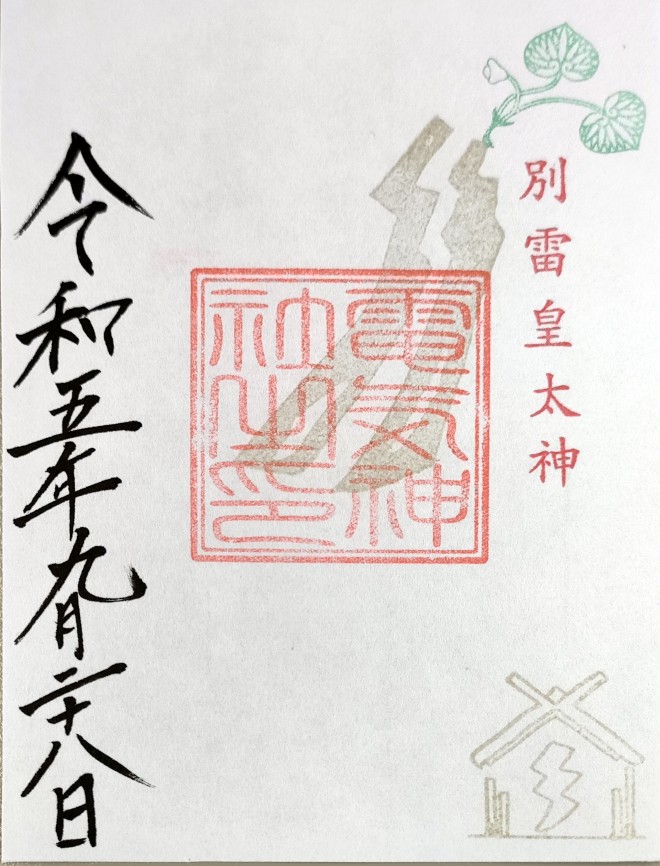 別雷皇太神
電気神
社之印
令和五年九月二十八日